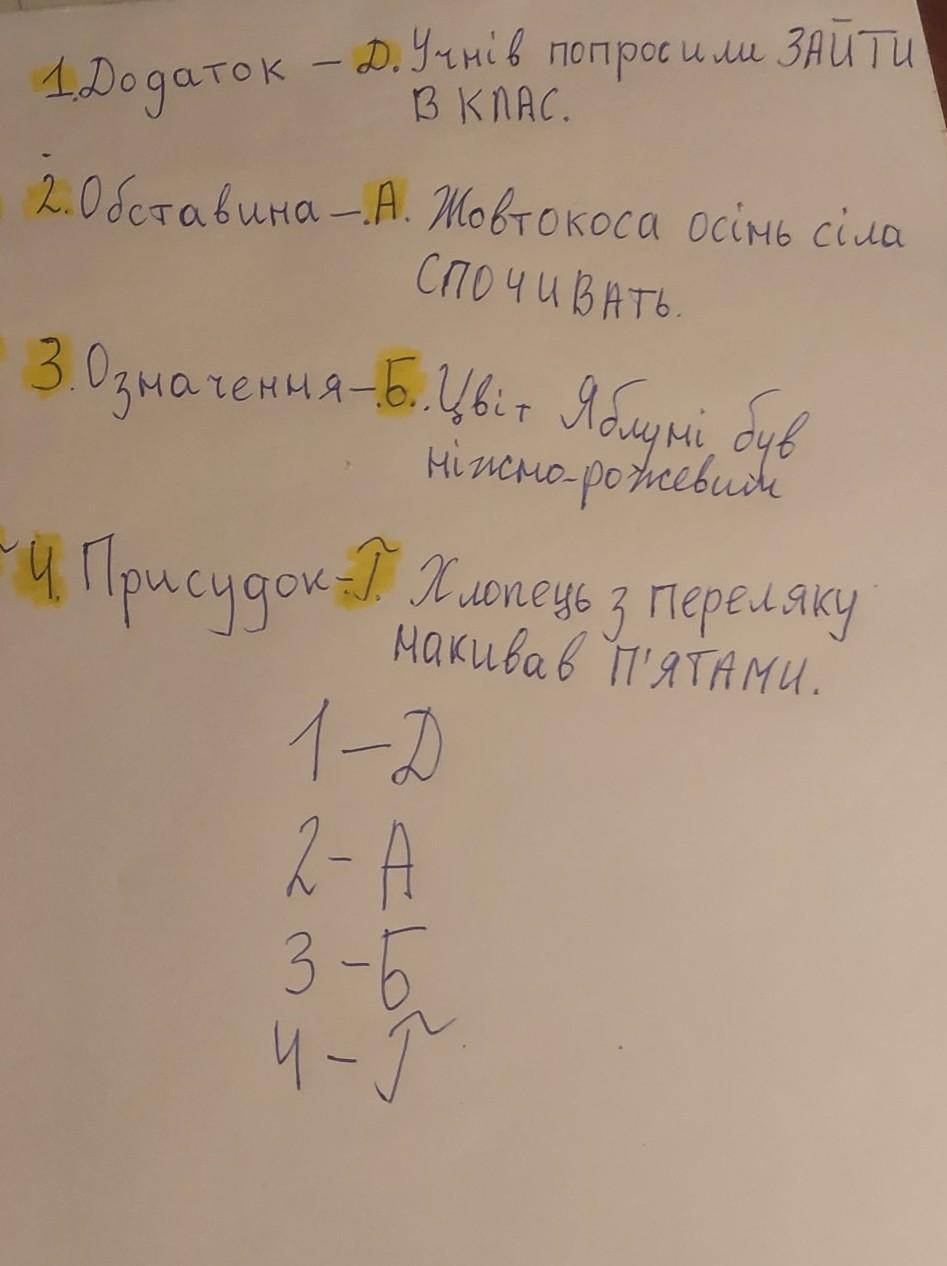 1.Додаток – Д. Учнів попросили ЗАЙТИ
В КЛАС.
2. Обставина –.А. Жовтокоса осінь сіла
СПОЧИВАТЬ.
3. Означення–.Б.. Цвіт Яблуні був
ніжно-рожевим
4. Присудок-Г. Хлопець з переляку
накивав П'ЯТАМИ.
1 – Д
2 - А
3 – Б
4 – Г